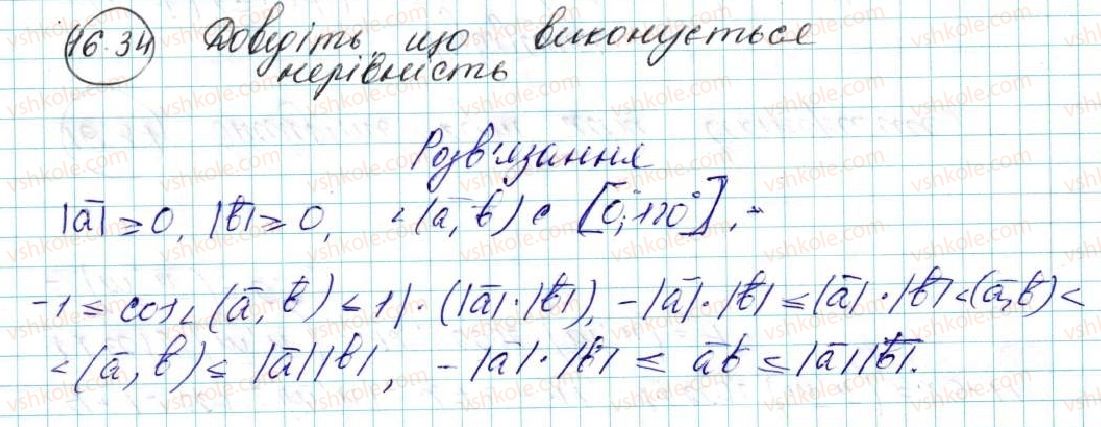 16.34 Доведіть, що виконується
нерівність
Розв'язання
|a̅| ≥ 0, |b̅| ≥ 0, ∠(a̅, b̅) ∈ [0°; 180°], -
-1 ≤ cos∠(a̅, b̅) ≤ 1 | · (|a̅| · |b̅|), -|a̅| · |b̅| ≤ |a̅| · |b̅| <(a̅, b̅) <
<(a̅, b̅) ≤ |a̅| |b̅|, -|a̅| · |b̅| ≤ a̅b̅ ≤ |a̅| |b̅|.
vshkole.com